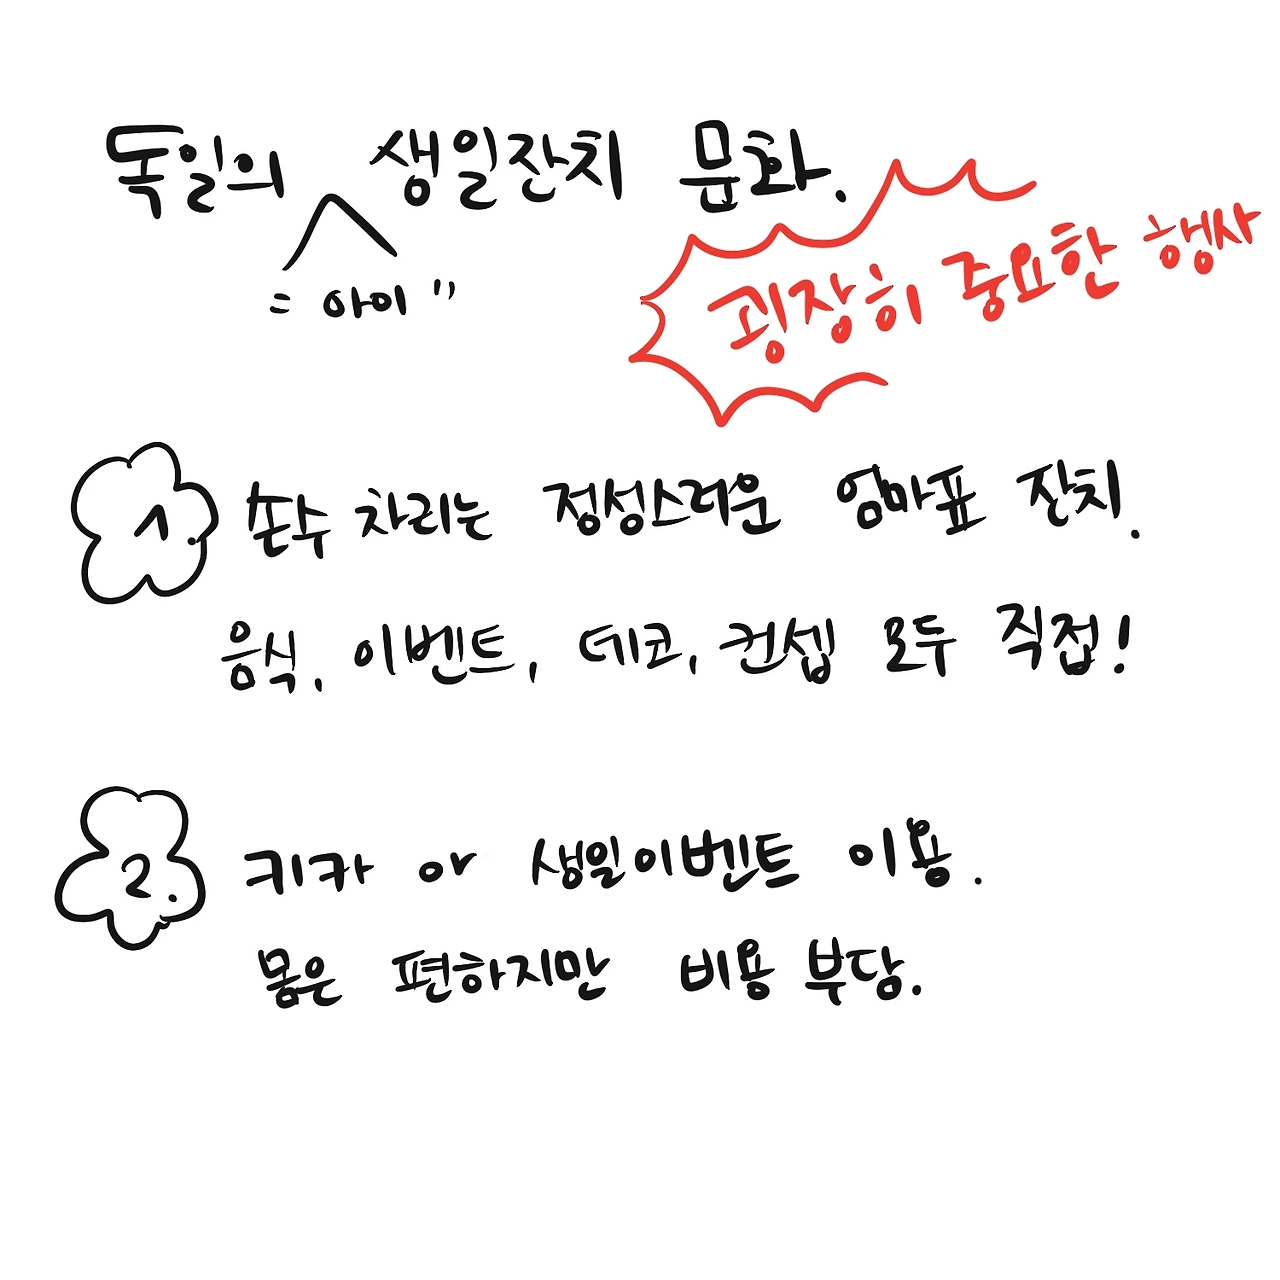 독일의 생일잔치 문화.
= 아이 "
굉장히 중요한 행사
1. 손수 차리는 정성스러운 엄마표 잔치.
음식, 이벤트, 데코, 컨셉 모두 직접!
2. 키카 or 생일이벤트 이용.
몸은 편하지만 비용 부담.